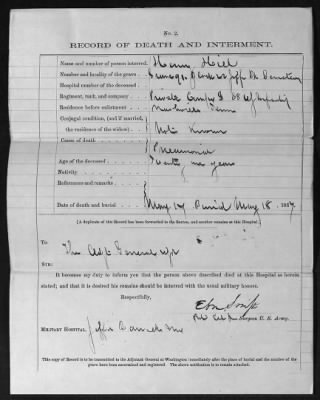 No. 2.
RECORD OF DEATH AND INTERMENT.
Name and number of person interred. Henry Hill
Number and locality of the grave.
Hospital number of the deceased.
Regiment, rank, and company. Private Comp'y
Residence before enlistment. Nashville Tenn
Conjugal condition, (and if married,
the residence of the widow.) Not Known
Cause of death. Pneumonia
Age of the deceased. Twenty one years
Nativity.
References and remarks.
Date of death and burial. May 17 Buried May 18. 1867.
(A duplicate of this Record has been forwarded to the Sexton, and another remains at this Hospital.)
To
The Adjt General
SIR:
It became my duty to inform you that the person above described died at this Hospital as herein
stated; and that it is desired his remains should be interred with the usual military honors.
Respectfully,
Surgeon U. S. Army.
MILITARY HOSPITAL, Jeffn Barracks Mo
This copy of Record is to be transmitted to the Adjutant General at Washington immediately after the place of burial and the number of the
grave have been ascertained and registered. The above notification is to remain attached.